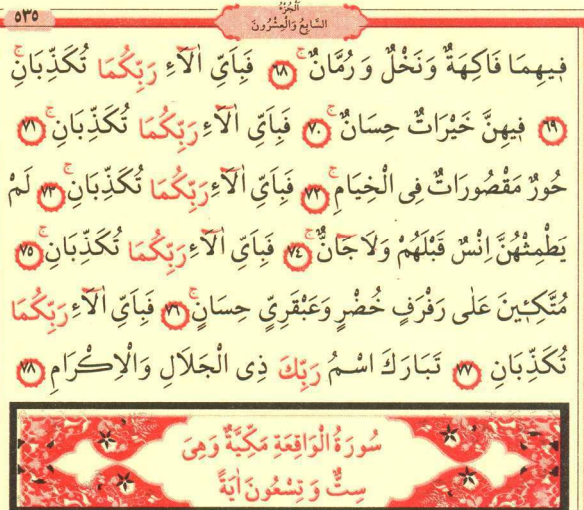 ٥٣٥
اَلْجُزْءُ
السَّابِعُ وَالْعِشْرُونَ
فٖيهِمَا فَاكِهَةٌ وَنَخْلٌ وَرُمَّانٌۚ ٦٨ فَبِاَيِّ اٰلَٓاءِ رَبِّكُمَا تُكَذِّبَانِۚ
٦٩ فٖيهِنَّ خَيْرَاتٌ حِسَانٌۚ ٧٠ فَبِاَيِّ اٰلَٓاءِ رَبِّكُمَا تُكَذِّبَانِۚ ٧١
حُورٌ مَقْصُورَاتٌ فِى الْخِيَامِۚ ٧٢ فَبِاَيِّ اٰلَٓاءِ رَبِّكُمَا تُكَذِّبَانِۚ ٧٣ لَمْ
يَطْمِثْهُنَّ اِنْسٌ قَبْلَهُمْ وَلَا جَٓانٌّۚ ٧٤ فَبِاَيِّ اٰلَٓاءِ رَبِّكُمَا تُكَذِّبَانِۚ ٧٥
مُتَّكِـٖٔينَ عَلٰى رَفْرَفٍ خُضْرٍ وَعَبْقَرِيٍّ حِسَانٍۚ ٧٦ فَبِاَيِّ اٰلَٓاءِ رَبِّكُمَا
تُكَذِّبَانِ ٧٧ تَبَارَكَ اسْمُ رَبِّكَ ذِى الْجَلَالِ وَالْاِكْرَامِ ٧٨
سُورَةُ الْوَاقِعَةِ مَكِّيَّةٌ وَهِىَ
سِتٌّ وَتِسْعُونَ اٰيَةً